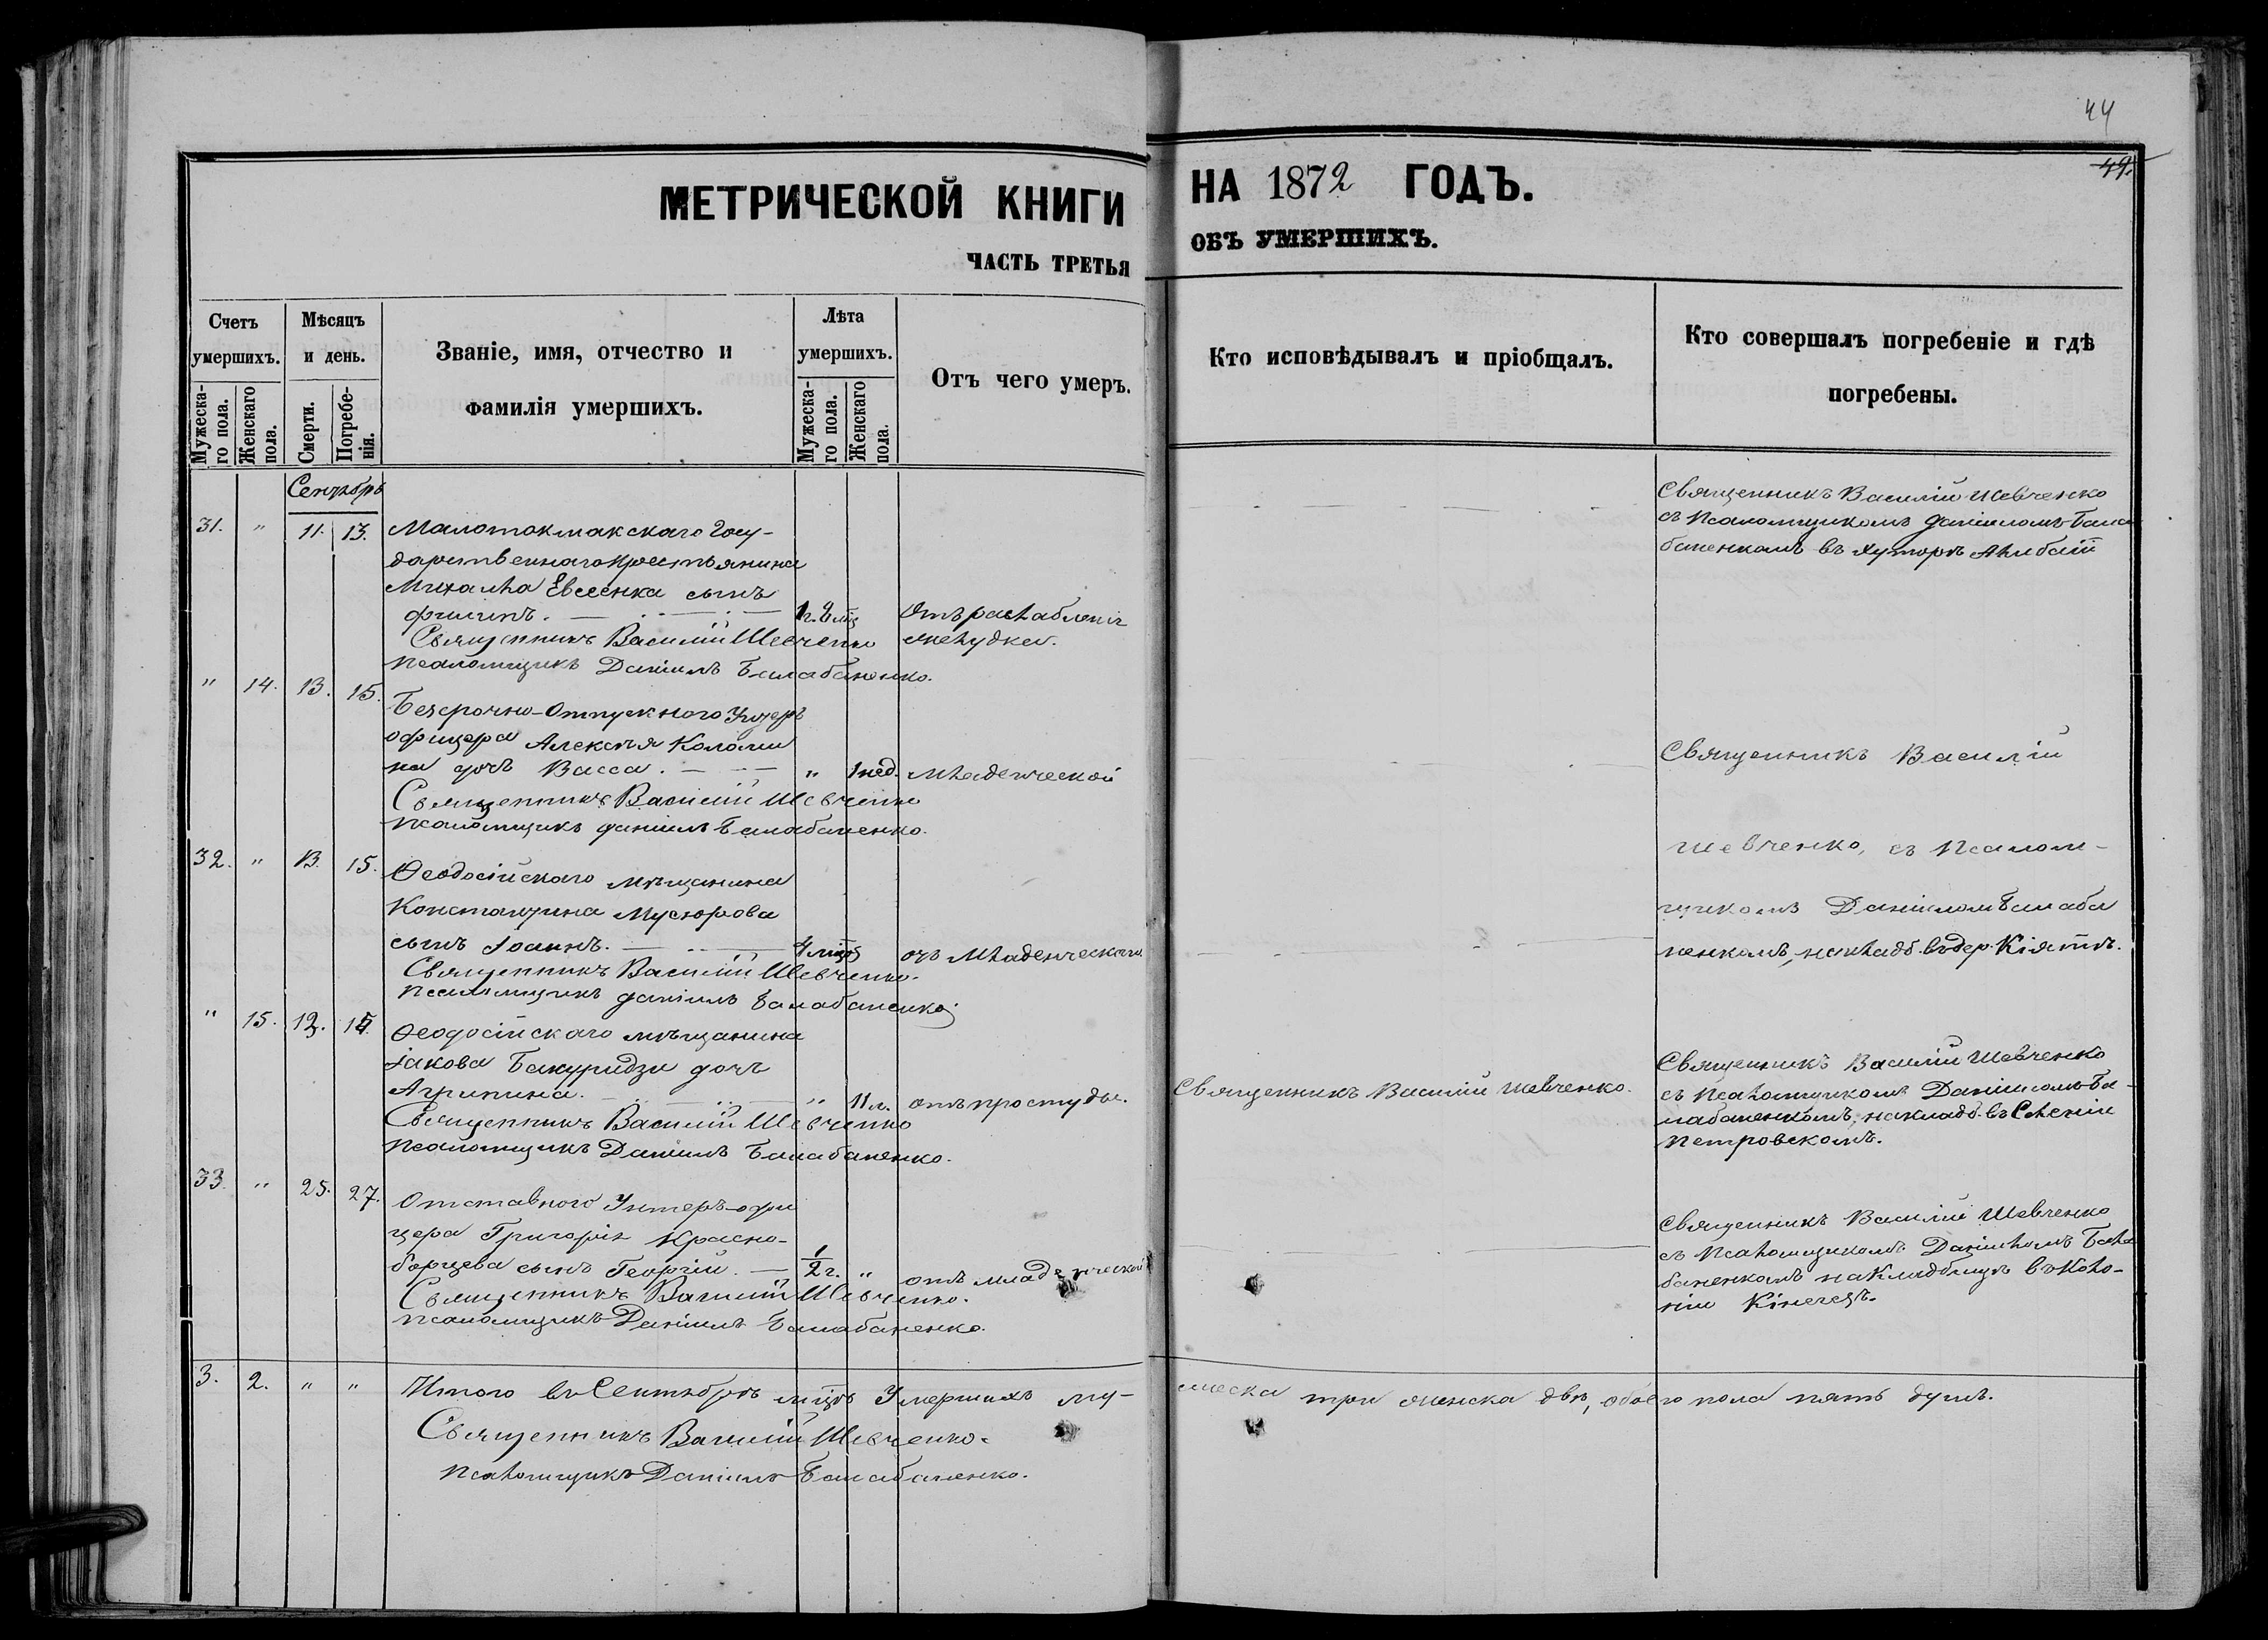 44
49.
МЕТРИЧЕСКОЙ КНИГИ
НА 1872 ГОДЪ.
ЧАСТЬ ТРЕТЬЯ
ОБЪ УМЕРШИХЪ.
Счетъ умершихъ.
Мужеска-го пола.
Женскаго пола.
Мѣсяцъ и день.
Смерти.
Погребе-нія.
Званіе, имя, отчество и
фамилія умершихъ.
Лѣта умершихъ.
Мужеска-го пола.
Женскаго пола.
Отъ чего умеръ.
Кто исповѣдывалъ и пріобщалъ.
Кто совершалъ погребеніе и гдѣ
погребены.
Сентябрь
31. " 11. 13. Малотокмакскаго Госу-
дарственнаго крестьянина
Михаила Евсеенка сынъ
Филипъ. 1г. Отъ разслабленія
желудка.
Священникъ Василій Шевченко
Псаломщикъ Даніилъ Балабаненко.
Священникъ Василій Шевченко
съ Псаломщикомъ Даніиломъ Бала
баненкомъ въ хуторѣ
" 14. 13. 15. Безсрочно-Отпускного Унтеръ
офицера Алексѣя Коломи
на дочь Васса. " 1 нед. младенческой
Священникъ Василій Шевченко
Псаломщикъ Даніилъ Балабаненко.
Священникъ Василій
Шевченко, съ Псалом-
32. " 13. 15. Ѳеодосійскаго мѣщанина
Константина Мусюрова
сынъ Іоаннъ. 4 отъ младенческаго
Священникъ Василій Шевченко.
Псаломщикъ Даніилъ Балабаненко
щикомъ Даніиломъ Балаба
ненкомъ, на кладб. въ дер. Кіятъ.
" 15. 12. 15. Ѳеодосійскаго мѣщанина
Іакова Бакуридзи дочь
Агрипина. " 11 л. отъ простуды.
Священникъ Василій Шевченко
Псаломщикъ Даніилъ Балабаненко.
Священникъ Василій Шевченко.
Священникъ Василій Шевченко
съ Псаломщикомъ Даніиломъ Ба-
лабаненкомъ, на кладб. въ Селеніи
Петровскомъ.
33. " 25. 27. Отставного Унтеръ-офи
цера Григорія Красно-
борцева сынъ Георгій. 1/2 г. " отъ младенческой
Священникъ Василій Шевченко.
Псаломщикъ Даніилъ Балабаненко.
Священникъ Василій Шевченко
съ Псаломщикомъ Даніиломъ Бала
баненкомъ на кладбищѣ въ Коло-
ніи
3. 2. " " Итого въ Сентябрѣ мцѣ Умершихъ му-
жеска три женска двѣ, обоего пола пять душъ.
Священникъ Василій Шевченко.
Псаломщикъ Даніилъ Балабаненко.